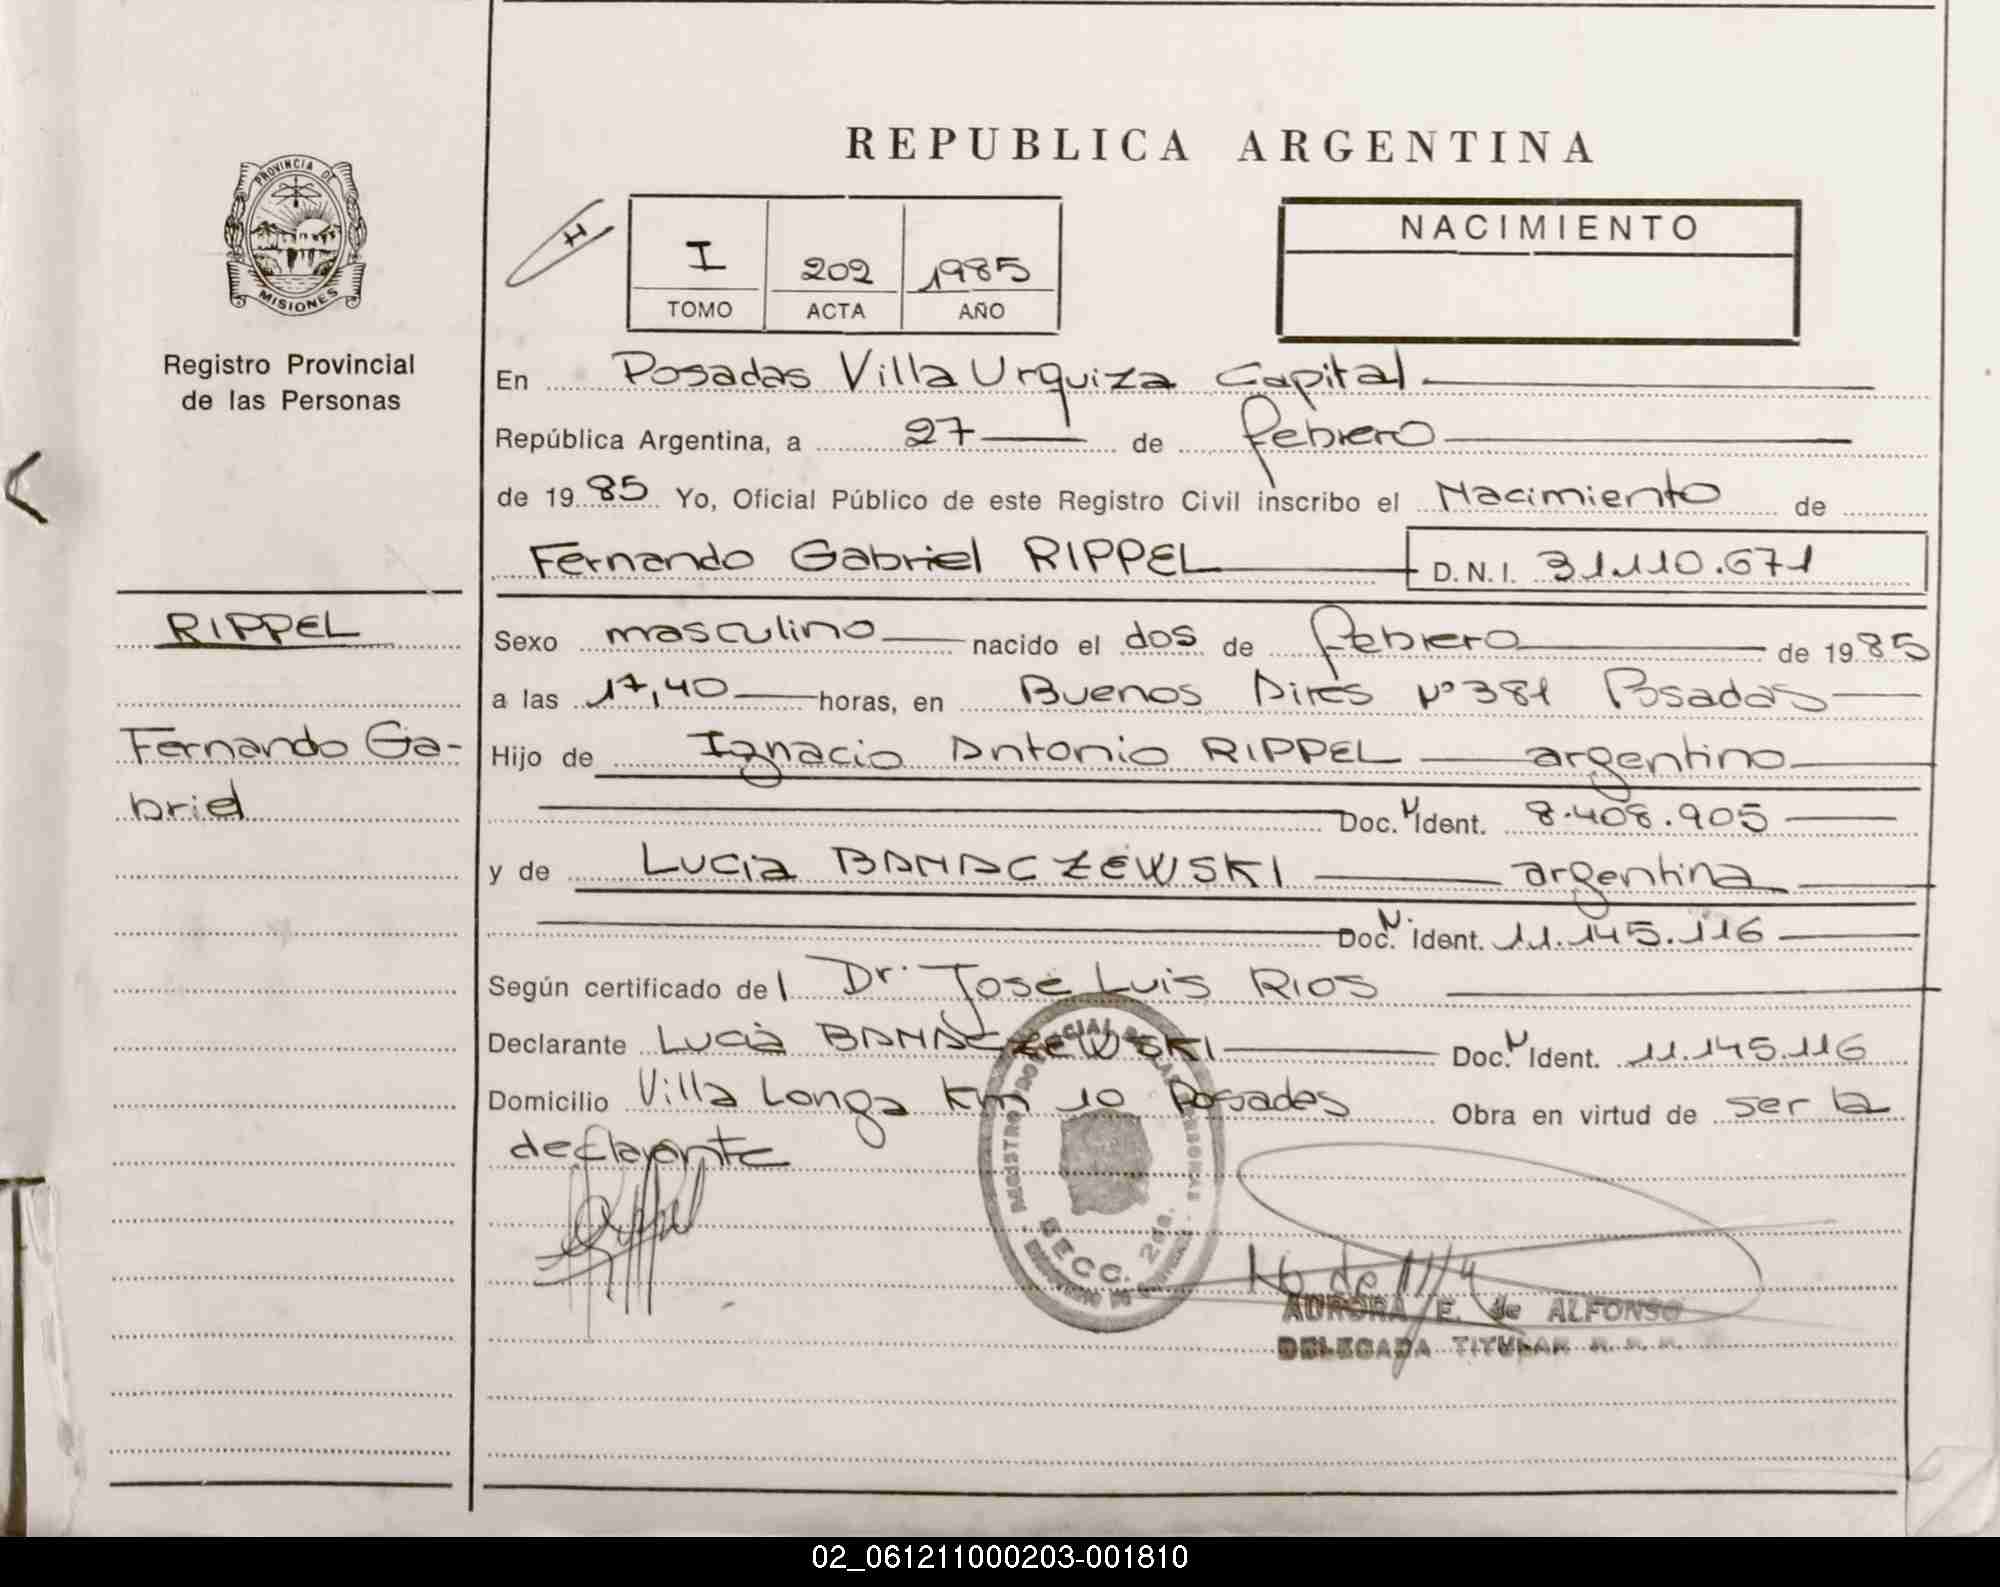 REPUBLICA ARGENTINA
PROVINCIA DE
MISIONES
Registro Provincial
de las Personas
H
I 202 1985
TOMO ACTA AÑO
NACIMIENTO
En Posadas Villa Urquiza Capital
República Argentina, a 27 de febrero
de 1985 Yo, Oficial Público de este Registro Civil inscribo el Nacimiento de
Fernando Gabriel RIPPEL D.N.I. 31.110.671
RIPPEL
Fernando Ga-
briel
Sexo masculino nacido el dos de febrero de 1985
a las 17,40 horas, en Buenos Aires Nº 381 Posadas
Hijo de Ignacio Antonio RIPPEL argentino
Doc. N Ident. 8.408.905
y de Lucia BANACZEWSKI argentina
Doc. N. Ident. 11.145.116
Según certificado del Dr. Jose Luis Rios
Declarante Lucia BANACZEWSKI Doc. N Ident. 11.145.116
Domicilio Villa Longa Km 10 Posadas Obra en virtud de ser la
declarante
SECC.
AURORA E. de ALFONSO
DELEGADA TITULAR R. P. P.
02_061211000203-001810